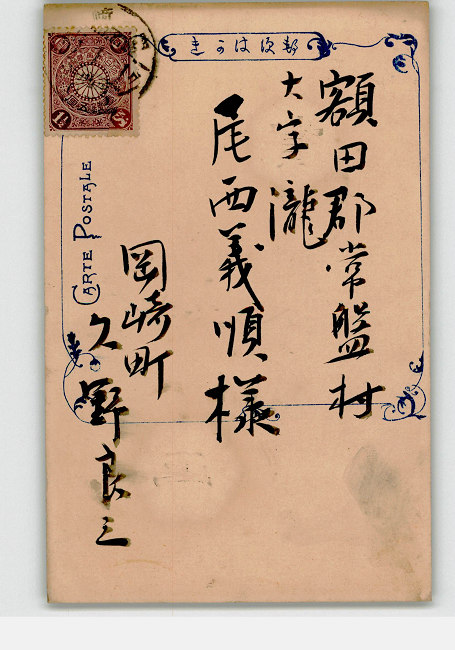 きかは便郵
額田郡常盤村
大字瀧
尾西義順様
岡崎町
久野良三
CARTE POSTALE
1½